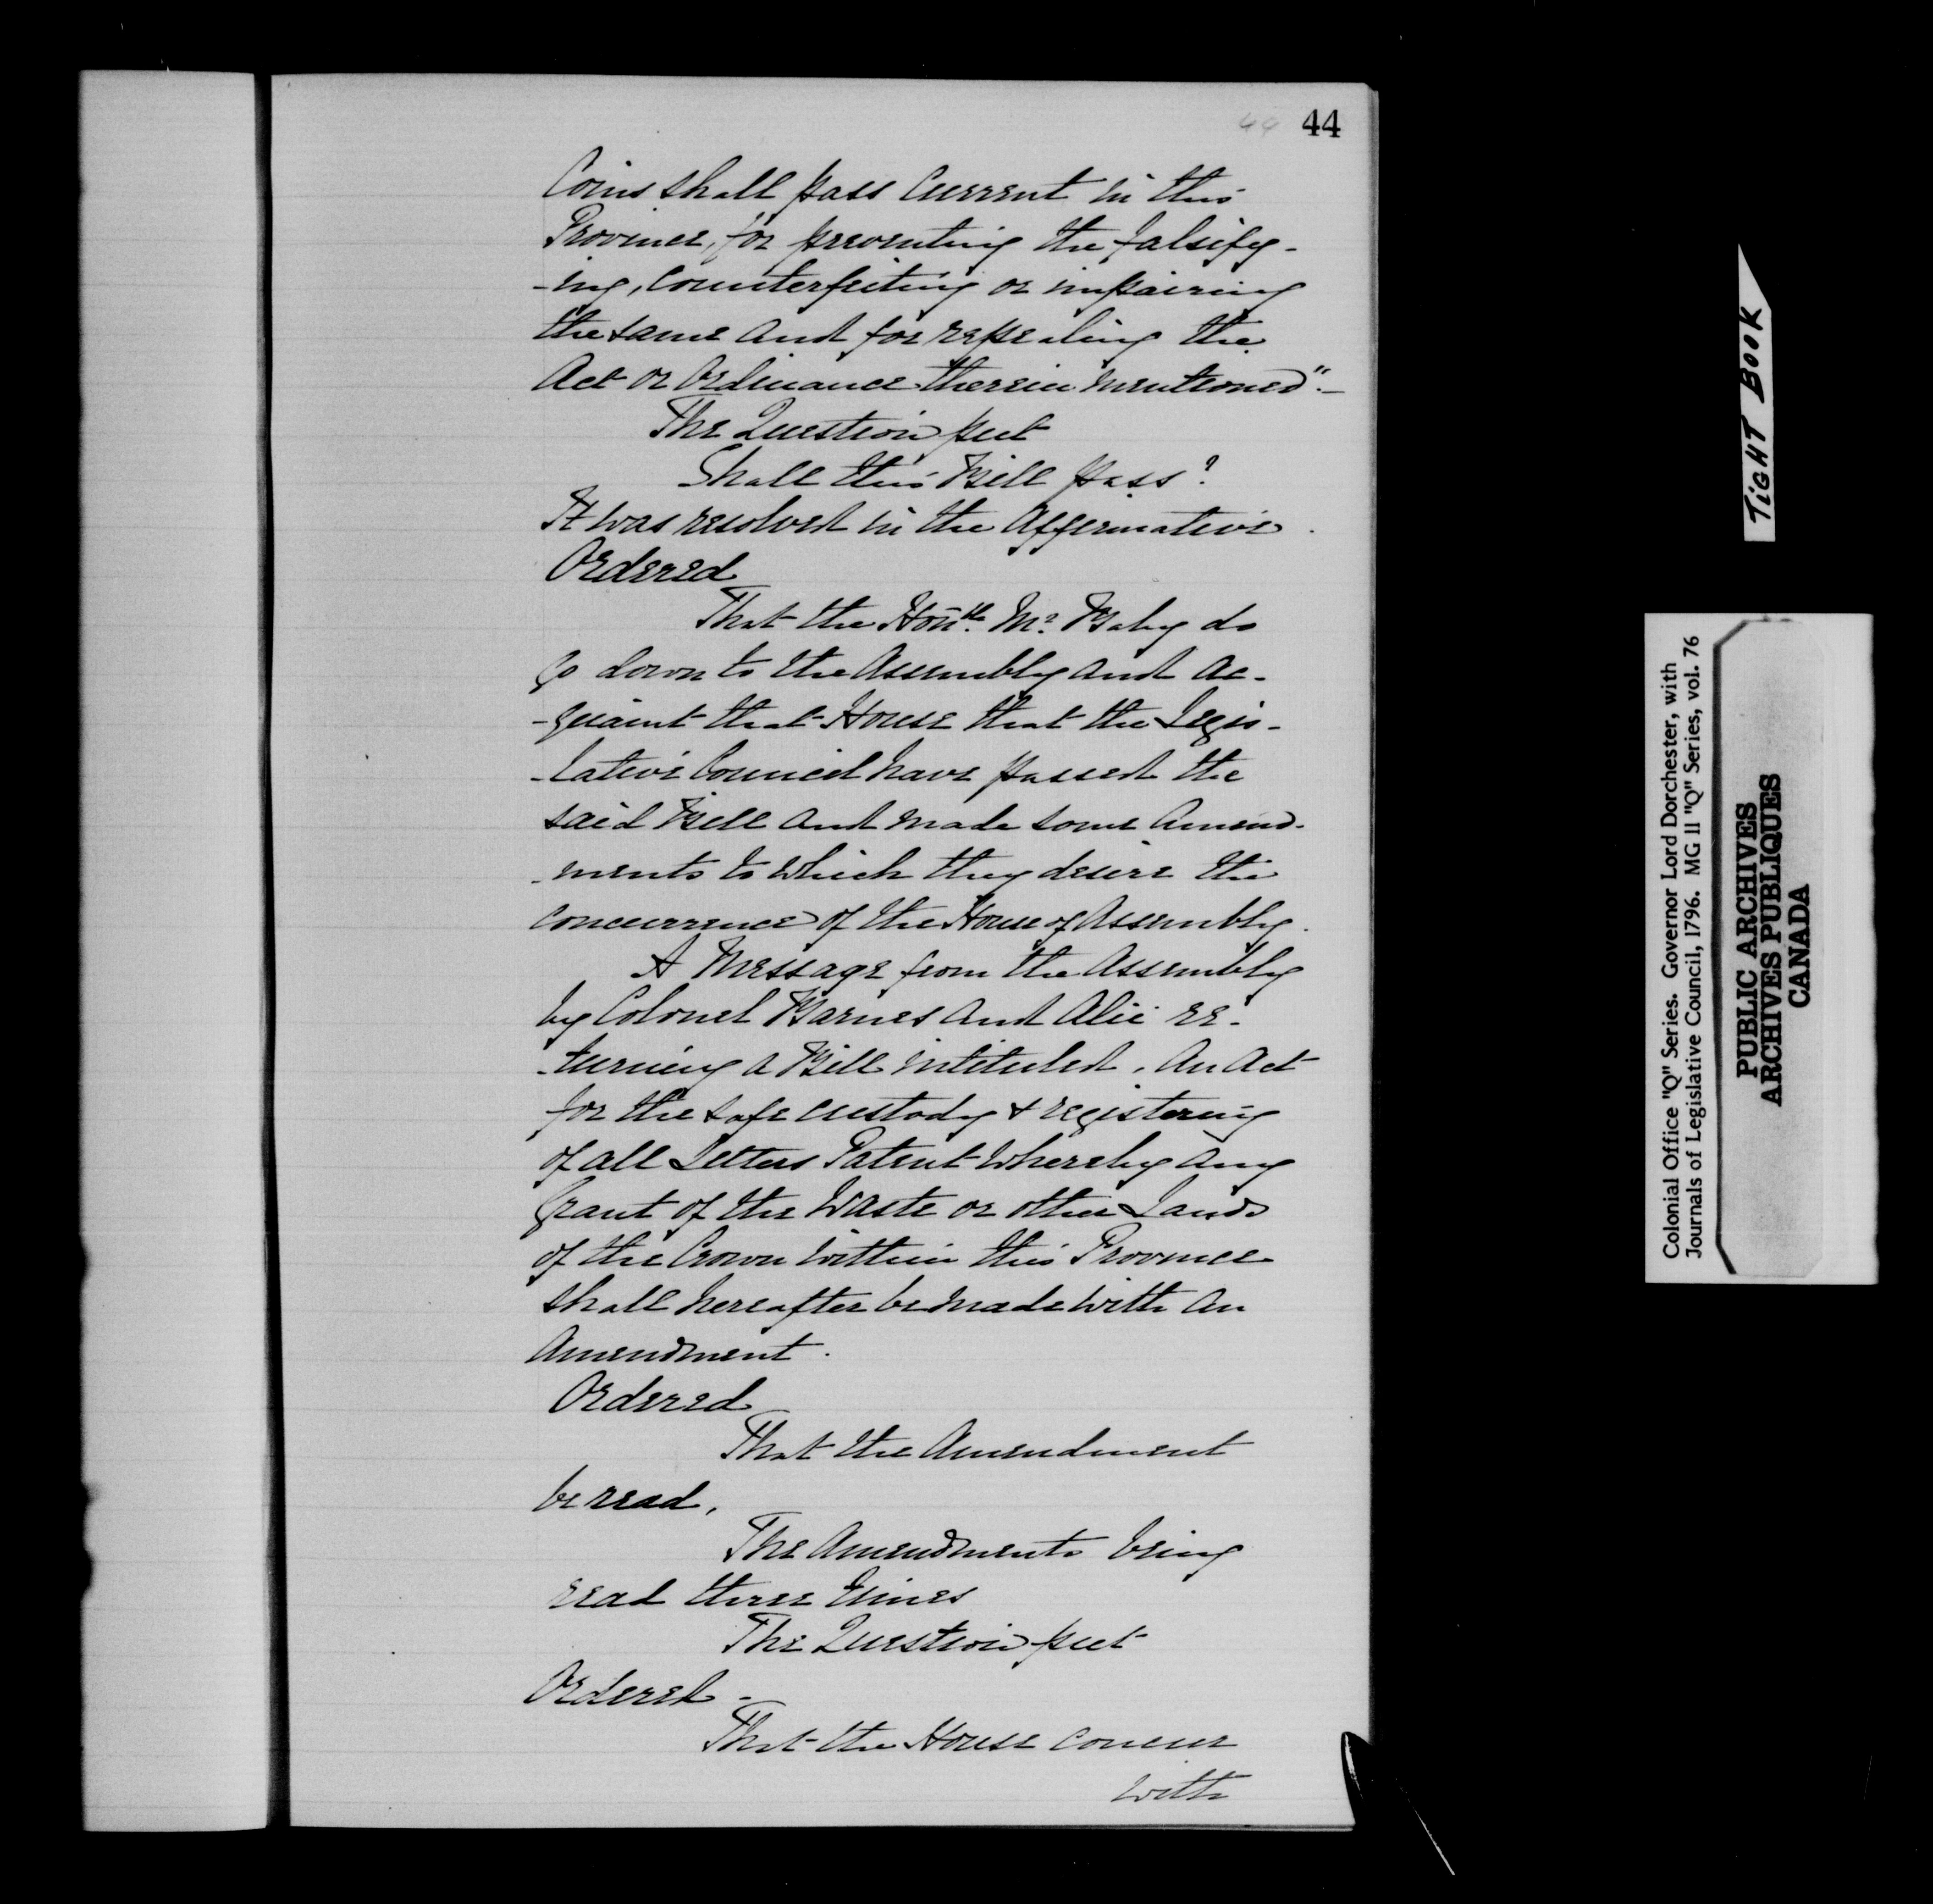 44 44
Coins shall pass Current in this
Province, for preventing the falsify-
-ing, Counterfeiting or impairing
the same and for repealing the
Act or Ordinance therein mentioned".—
The Question put
Shall this Bill pass?
It was resolved in the Affirmative.
Ordered
That the Honble. Mr. Baby do
go down to the Assembly and ac-
-quaint that House that the Legis-
-lative Council have passed the
said Bill and made some Amend-
-ments to which they desire the
concurrence of the House of Assembly.
A Message from the Assembly
by Colonel Barnes and re-
-turning a Bill intituled. An Act
for the safe custody & registering
of all Letters Patent whereby any
Grant of the Waste or other Lands
of the Crown within this Province
shall hereafter be made with an
Amendment.
Ordered
That the Amendment
be read,
The Amendments being
read three times
The Question put
Ordered -
That the House concur
with
TIGHT BOOK
Colonial Office "Q" Series. Governor Lord Dorchester, with
Journals of Legislative Council, 1796. MG 11 "Q" Series, vol. 76
PUBLIC ARCHIVES
ARCHIVES PUBLIQUES
CANADA